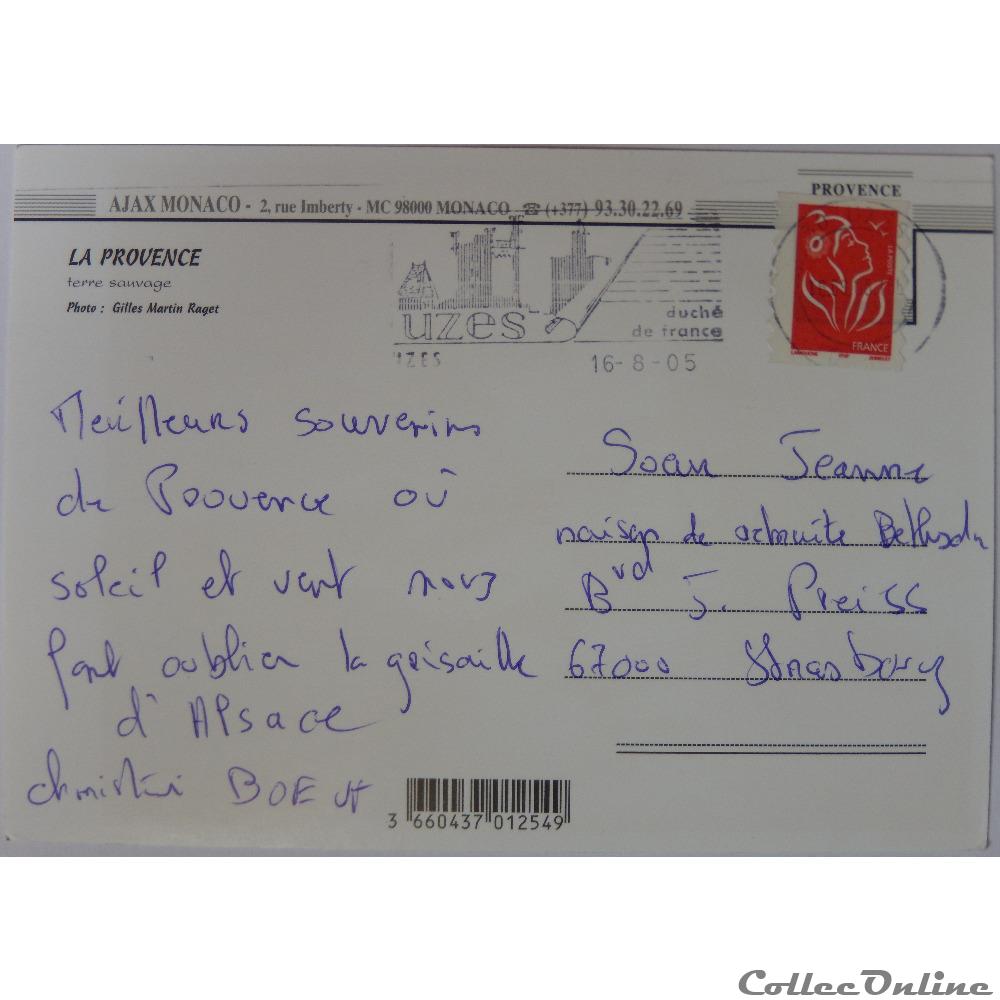 AJAX MONACO - 2, rue Imberty - MC 98000 MONACO - ☎ (+377) 93.30.22.69
PROVENCE
LA PROVENCE
terre sauvage
Photo : Gilles Martin Raget
uzes
duché
de france
UZES
16-8-05
LA POSTE
FRANCE
Meilleurs souvenirs
de Provence où
soleil et vent nous
font oublier la grisaille
d'Alsace
BOE
Soeur Jeanne
maison de retraite Bethesda
Bvd J. Preiss
67000 Strasbourg
3 660437 012549
CollecOnline